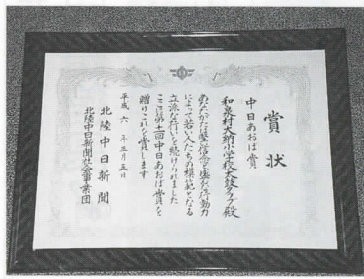 賞状
中日あおば賞
和泉村大納小学校太鼓クラブ殿
あなたがたは堅い信念と盛んな行動力
によって若い人たちの模範となる
立派な行いを続けられました
ここに第十一回中日あおば賞を
贈りこれを賞します
平成六年五月五日
北陸中日新聞
北陸中日新聞社会事業団